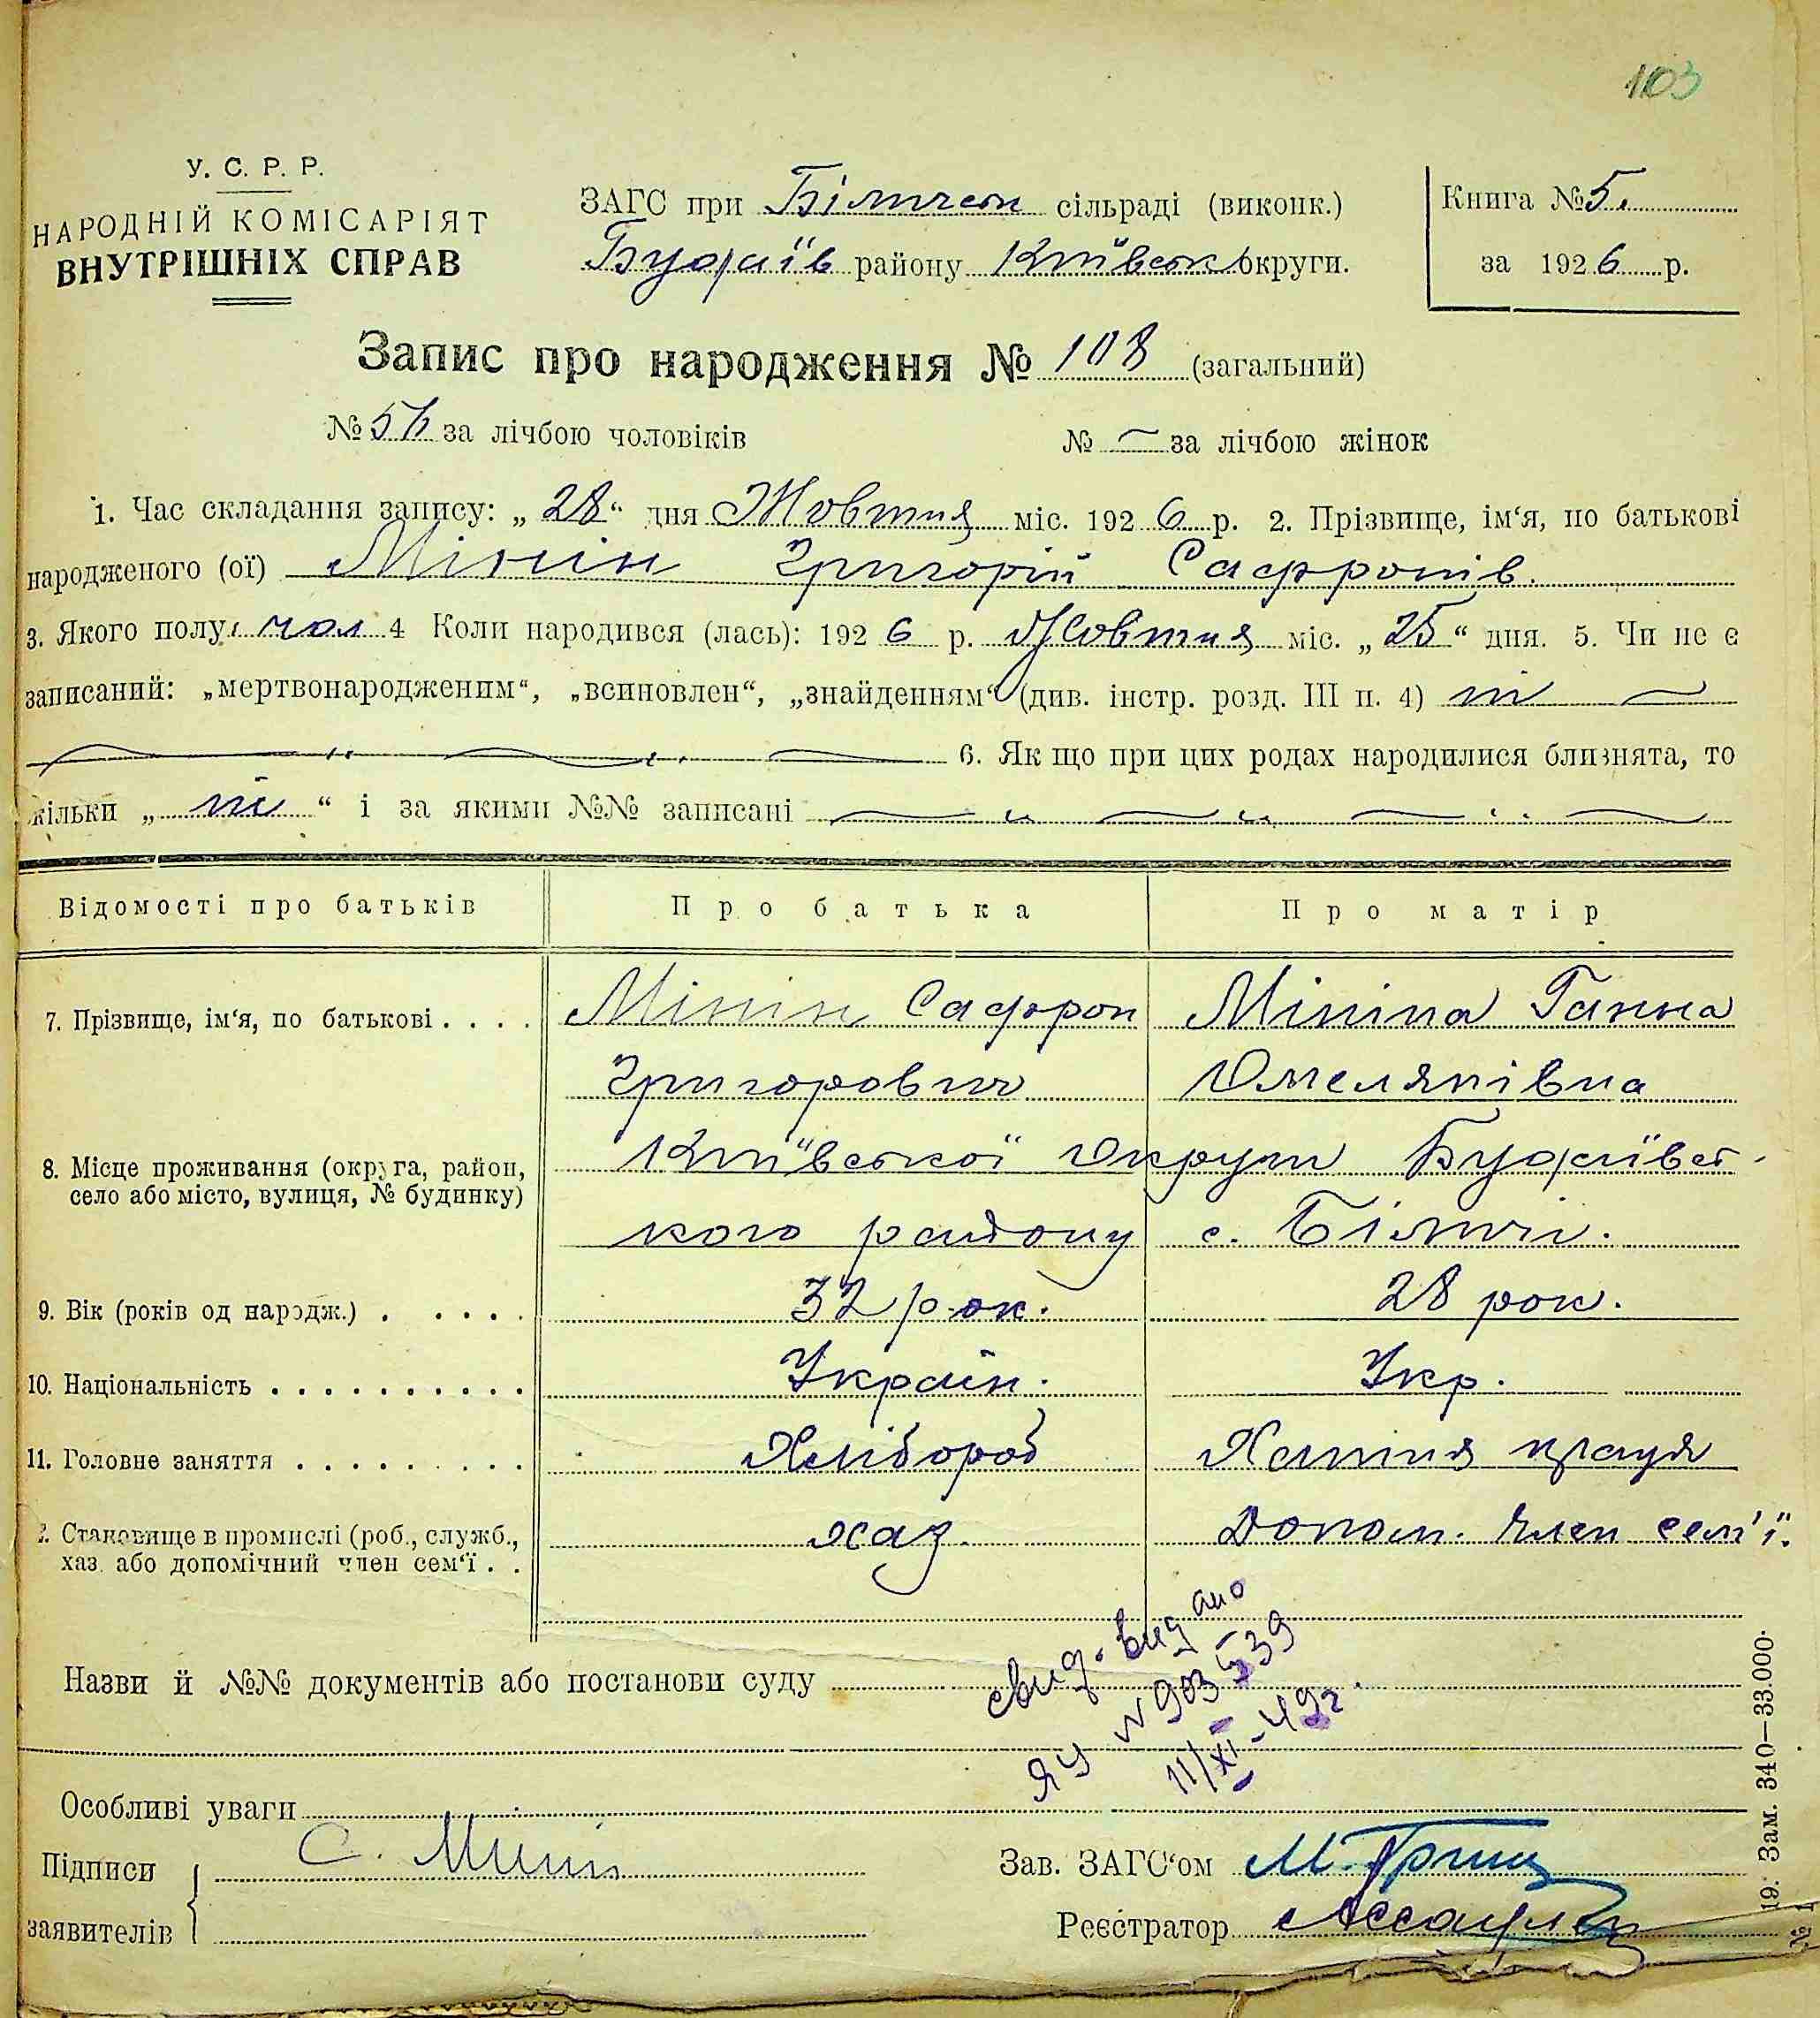 103
У. С. Р. Р.
НАРОДНІЙ КОМІСАРІЯТ
ВНУТРІШНІХ СПРАВ
ЗАГС при Білическ сільраді (виконк.)
Будаїв району Київськ округи.
Книга № 5.
за 1926 р.
Запис про народження № 108 (загальний)
№ за лічбою чоловіків № — за лічбою жінок
1. Час складання запису: „28“ дня Жовтня міс. 1926 р. 2. Прізвище, ім‘я, по батькові
народженого (ої) Мінін Григорій Сафронів.
3. Якого полу чол 4 Коли народився (лась): 1926 р. Жовтня міс. „25“ дня. 5. Чи не є
записаний: „мертвонародженим“, „всиновлен“, „знайденням“ (див. інстр. розд. III п. 4) ні —
6. Як що при цих родах народилися близнята, то
кільки „ні“ і за якими №№ записані
Відомості про батьків Про батька Про матір
7. Прізвище, ім‘я, по батькові . . . . Мінін Сафрон Мініна Ганна
Григорович Омелянівна
8. Місце проживання (округа, район, Київської Округи Будаївсь-
село або місто, вулиця, № будинку)
кого району с. Біличі.
9. Вік (років од народж.) . . . . . 32 рок. 28 рок.
10. Національність . . . . . . . . . . Україн. Укр.
11. Головне заняття . . . . . . . . . Хлібороб Хатня праця
2. Становище в промислі (роб., служб., хаз. Допом. член сем'ї.
хаз. або допомічний член сем‘ї . .
Назви й №№ документів або постанови суду
свид. видано
ЯУ № 903539
11/XI-49г
Особливі уваги
Підписи С. Минін Зав. ЗАГС‘ом М. Гриш
заявителів Реєстратор
19: Зам. 340—33.000.